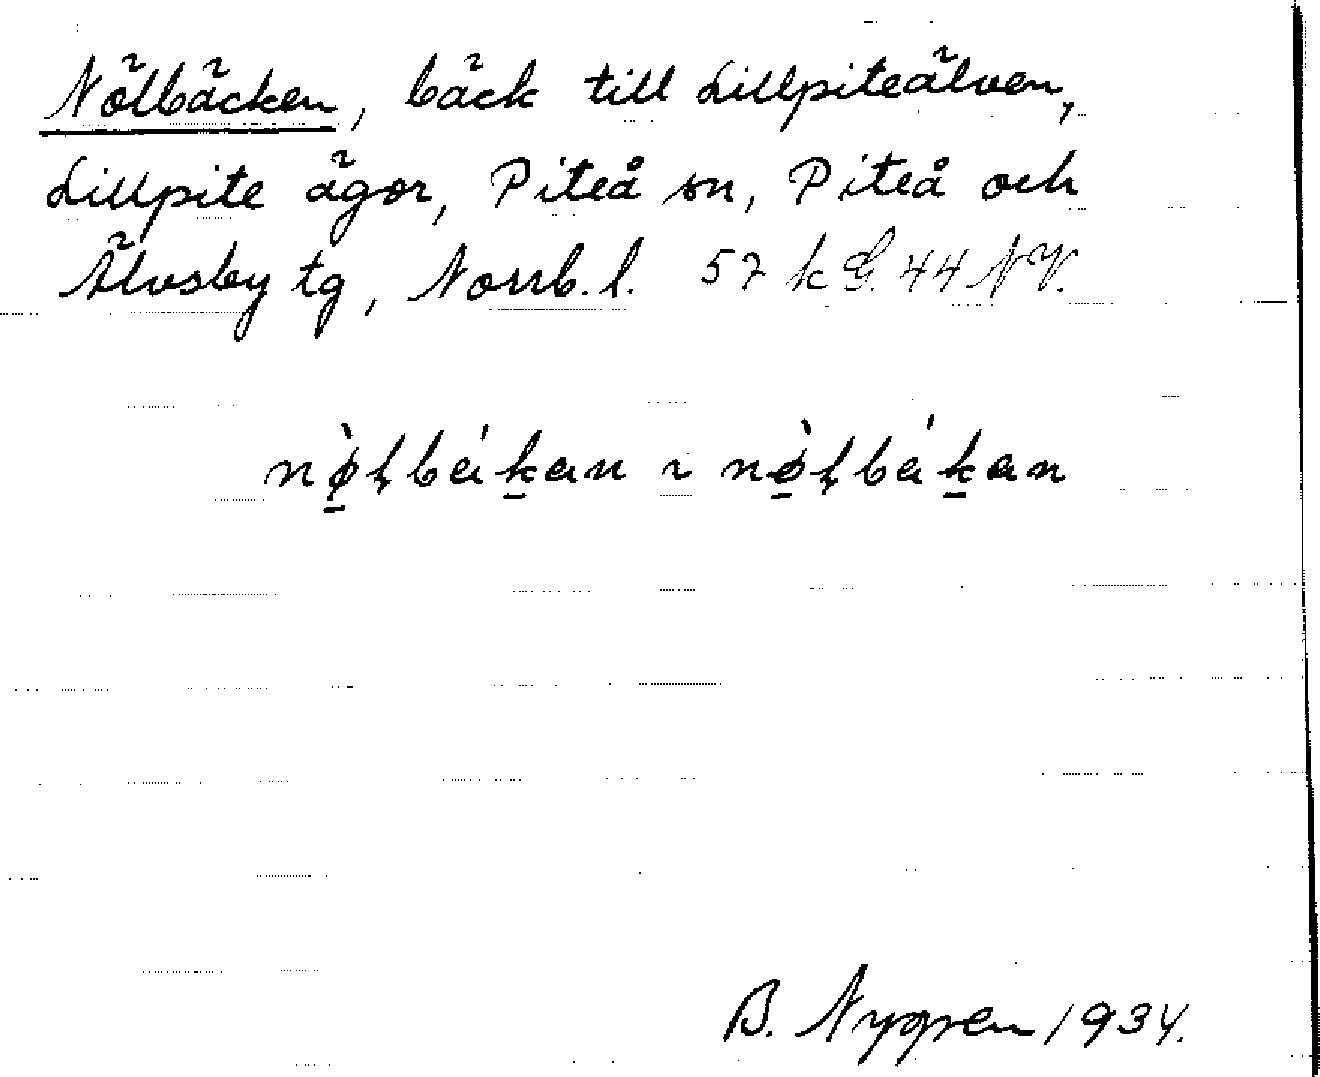 Nölbäcken, bäck till Lillpiteälven,
Lillpite ägor, Piteå sn, Piteå och
Älvsby tg, Norrb. l. 57 k G. 44 NV.
B. Nygren 1934.